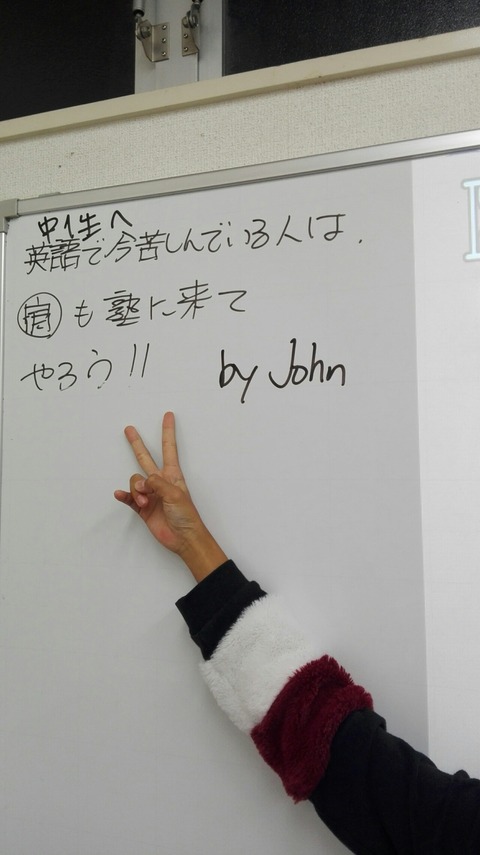 中1生へ
英語で今苦しんでいる人は、
も塾に来て
やろう!!
by John